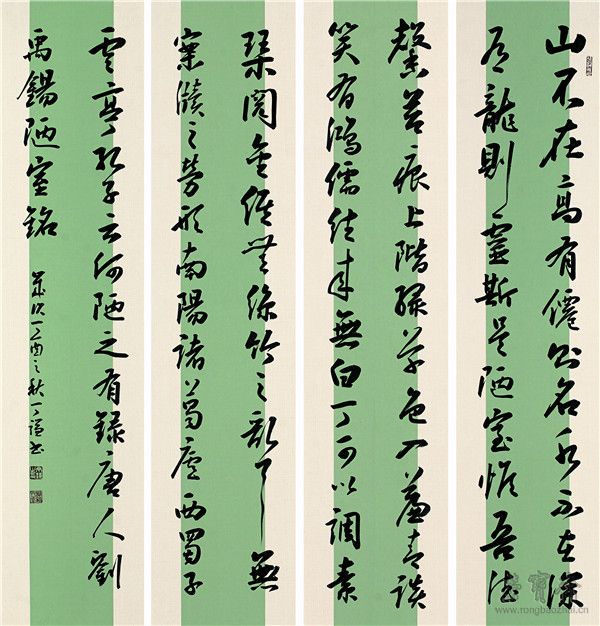 山不在高有僊則名水不在深
有龍則靈斯是陋室惟吾德
馨苔痕上階緑草色入簾青談
笑有鴻儒往来無白丁可以調素
琴閱金經無絲竹之亂耳無
案牘之勞形南陽諸葛廬西蜀子
雲亭孔子云何陋之有録唐人劉
禹錫陋室銘
歲次丁酉之秋丁謙書
www.rongbaozhai.cn